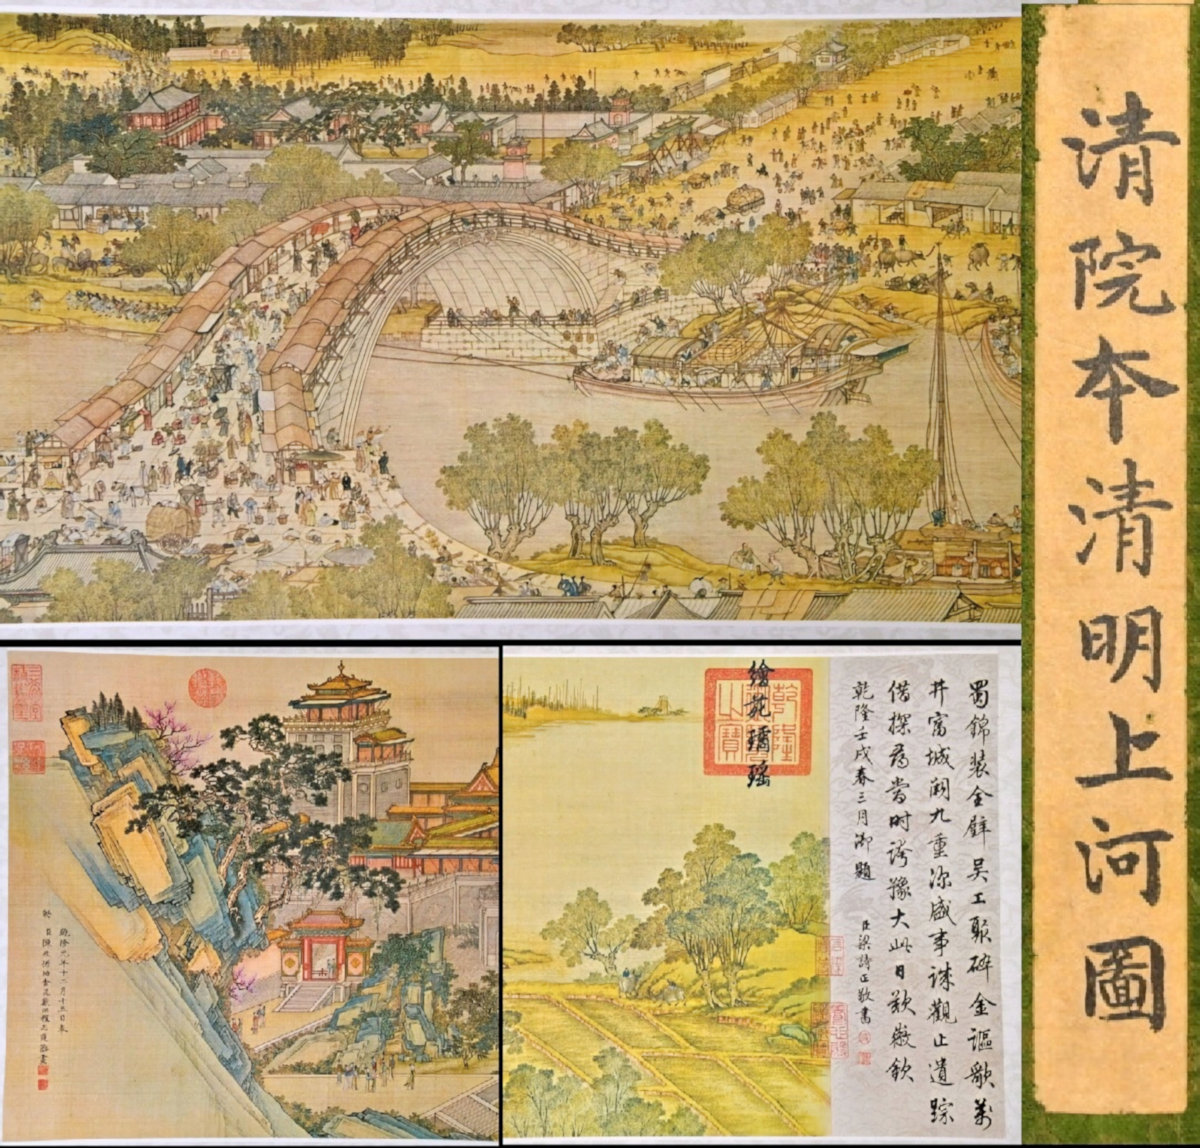 清院本清明上河圖
繪苑璚瑤
乾隆之寶
蜀錦装全璧吴工聚碎金謳歌萬
井富城闕九重深盛事誠觀止遺踪
借探尋當時誇豫大此日歎徽欽
乾隆壬戌春三月御題
臣梁詩正敬書
乾隆元年十二月十五日奉
勑臣陳枚孫祜金昆戴洪程志道恭畫